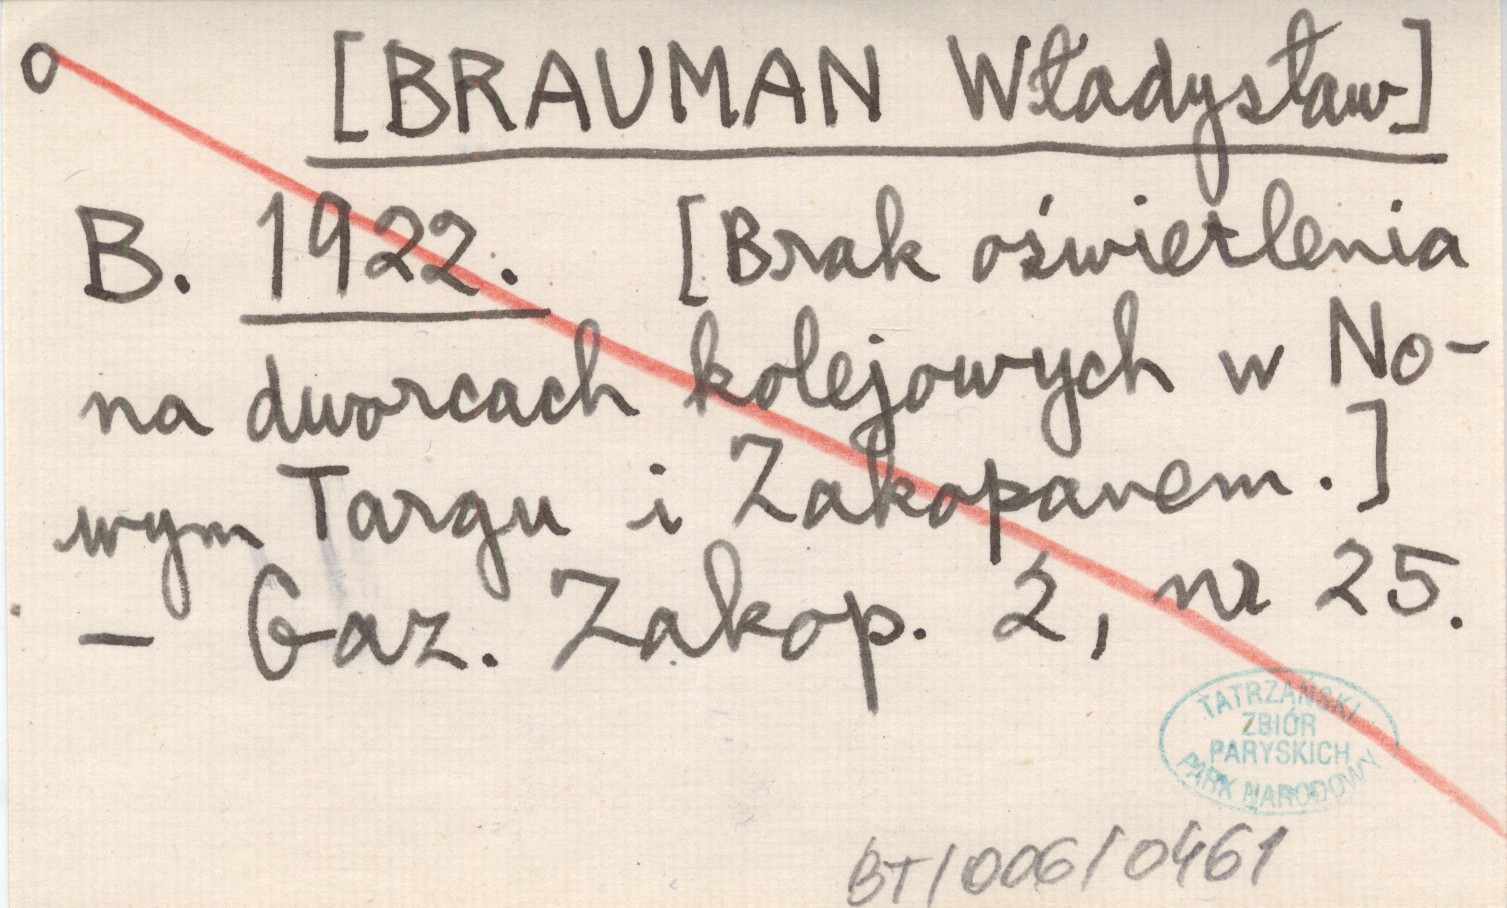 O [BRAUMAN Władysław]
B. 1922. [Brak oświetlenia
na dworcach kolejowych w No-
wym Targu i Zakopanem.]
— Gaz. Zakop. 2, nr 25.
TATRZAŃSKI
ZBIÓR
PARYSKICH
PARK NARODOWY
BT/006/0461